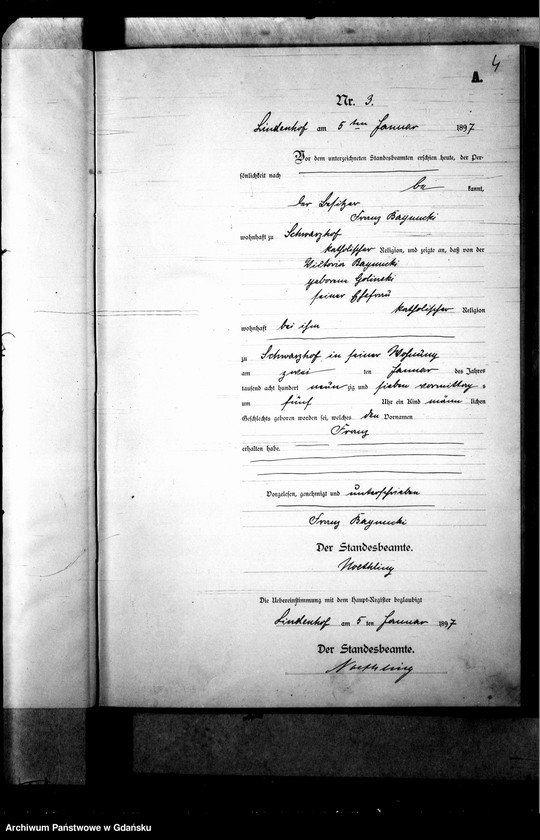 4
A.
Nr. 3.
Lindenhof am 5 ten Januar 1897
Vor dem unterzeichneten Standesbeamten erschien heute, der Per-
sönlichkeit nach
be kannt,
der Besitzer
Franz
wohnhaft zu Schwarzhof
katholischer Religion, und zeigte an, daß von der
Viktoria
geborene Golinski
seiner Ehefrau
katholischer Religion
wohnhaft bei ihm
zu Schwarzhof in seiner Wohnung
am zwei ten Januar des Jahres
tausend acht hundert neun zig und sieben vormittags
um fünf Uhr ein Kind männ lichen
Geschlechts geboren worden sei, welches den Vornamen
Franz
erhalten habe.
Vorgelesen, genehmigt und unterschrieben
Franz
Der Standesbeamte.
Noethling
Die Uebereinstimmung mit dem Haupt-Register beglaubigt
Lindenhof am 5 ten Januar 1897
Der Standesbeamte.
Noethling
Archiwum Państwowe w Gdańsku